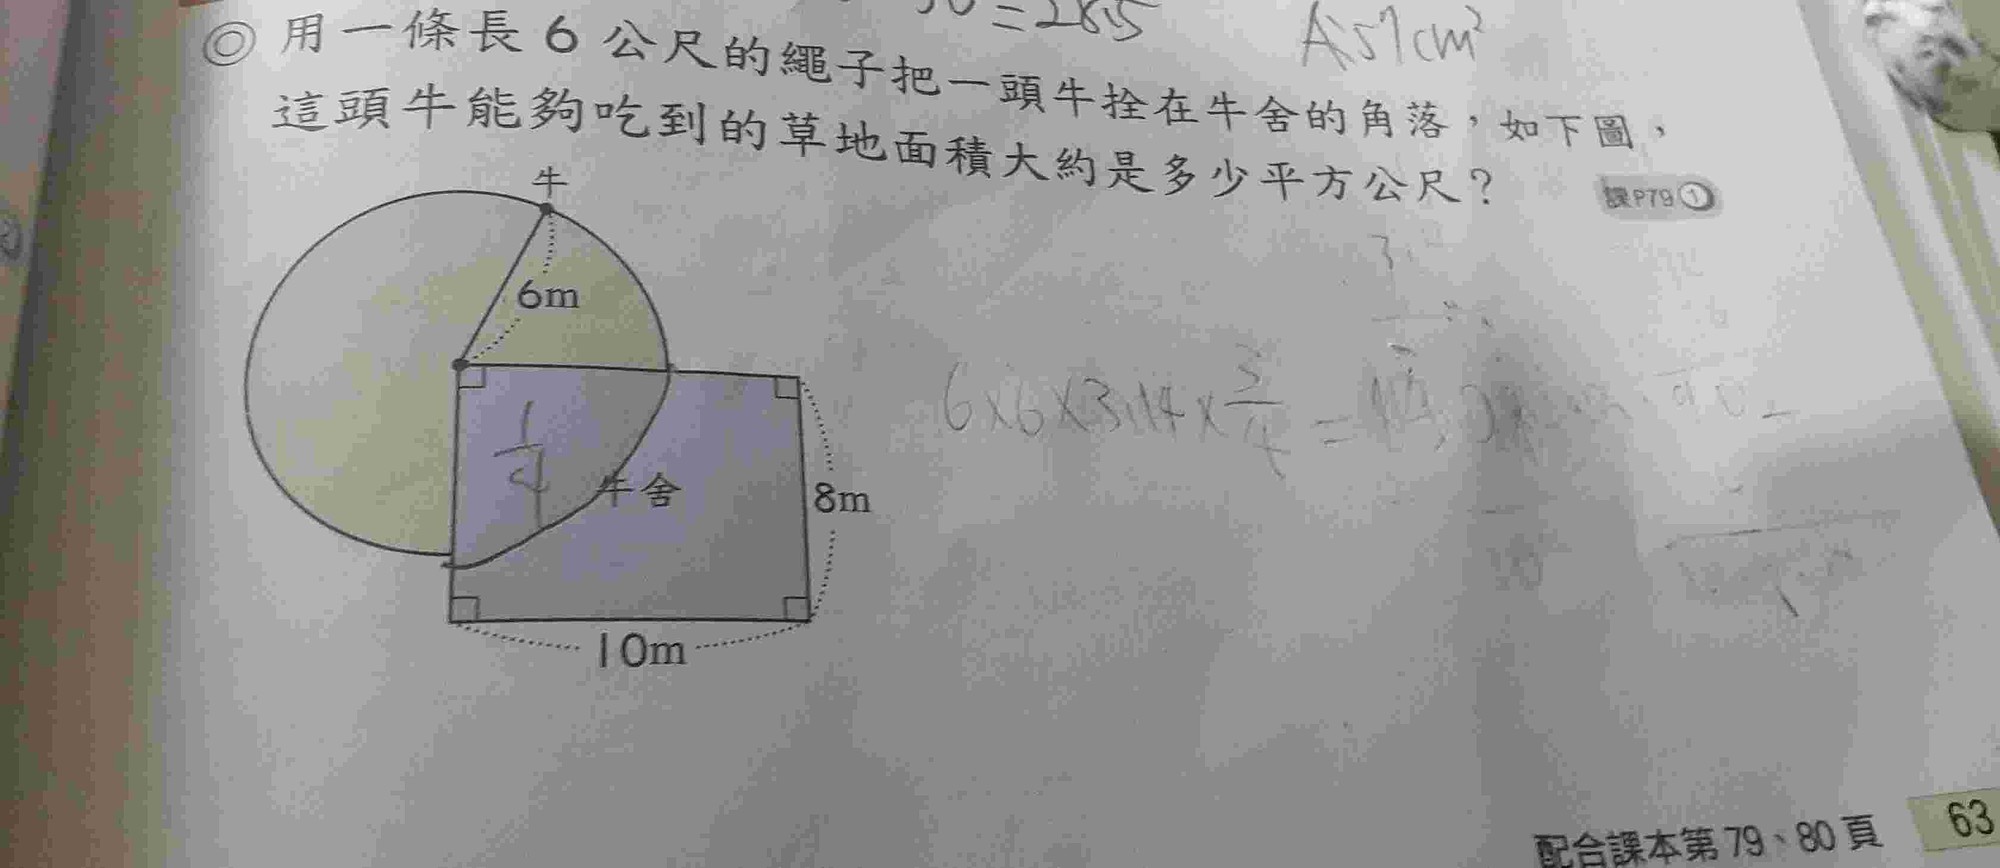 =285
A:57cm²
◎用一條長6公尺的繩子把一頭牛拴在牛舍的角落，如下圖，
這頭牛能夠吃到的草地面積大約是多少平方公尺？
課P79①
牛
6m
1/4
牛舍
8m
10m
6×6×3.14×3/4=
配合課本第79、80頁
63